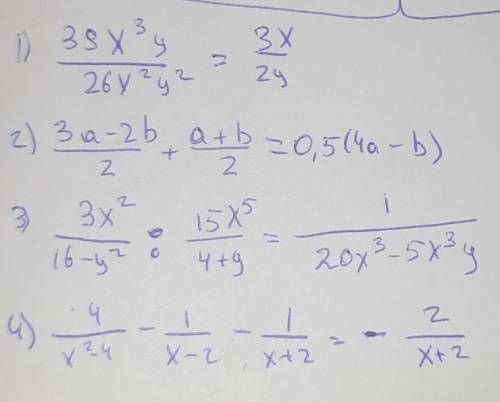 1) 39x³y / 26x²y² = 3x / 2y
2) 3a-2b / 2 + a+b / 2 = 0,5(4a-b)
3) 3x² / 16-y² : 15x⁵ / 4+y = 1 / 20x³-5x³y
4) 4 / x²-4 - 1 / x-2 - 1 / x+2 = - 2 / x+2